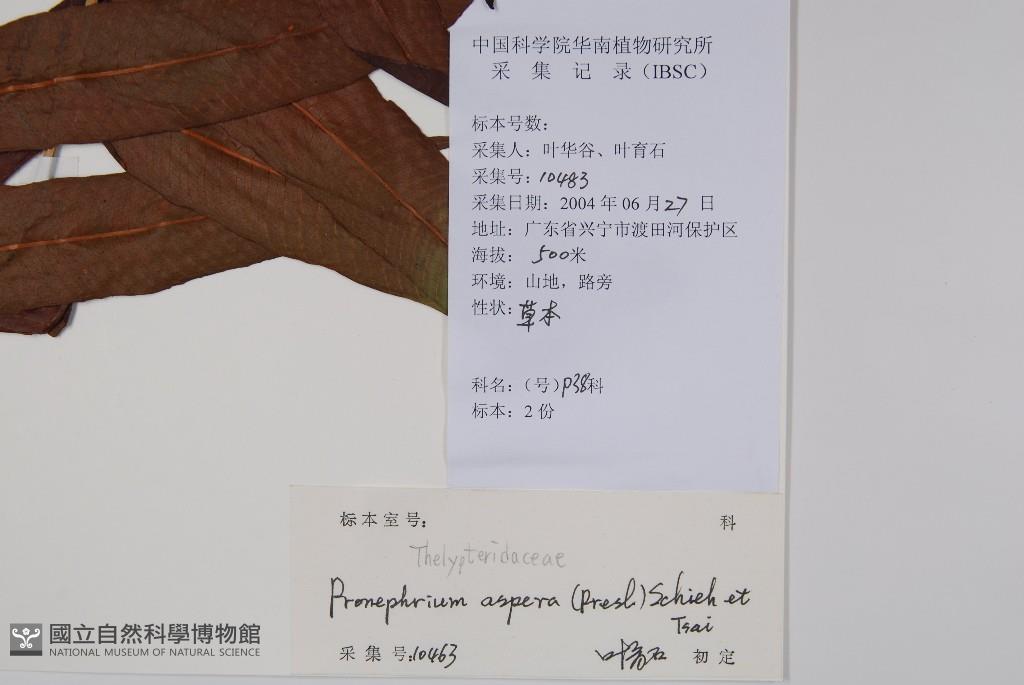 中国科学院华南植物研究所
采 集 记 录（IBSC）
标本号数：
采集人：叶华谷、叶育石
采集号：10483
采集日期：2004 年 06 月 27 日
地址：广东省兴宁市渡田河保护区
海拔： 500米
环境：山地，路旁
性状：草本
科名：（号）P38科
标本：2 份
标 本 室 号： 科
Thelypteridaceae
Pronephrium aspera (Presl.) Schieh et
Tsai
采 集 号：10463 叶育石 初 定
國立自然科學博物館
NATIONAL MUSEUM OF NATURAL SCIENCE